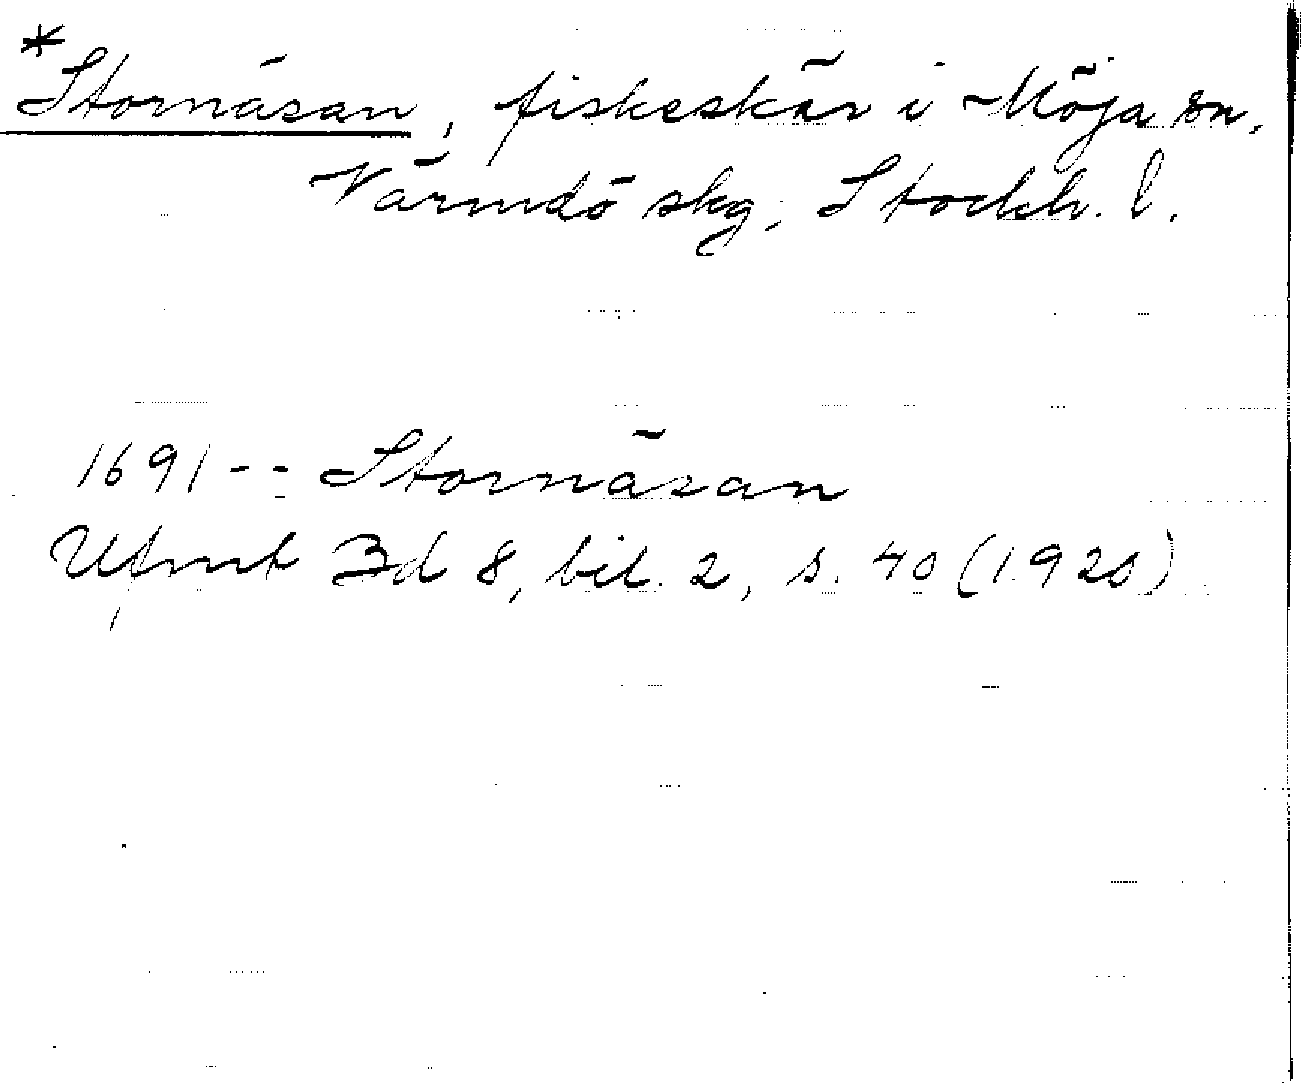 *Stornäsan, fiskeskär i Möja sn,
Värmdö skg, Stockh. l.
1691 -- Stornäsan
Ufmt Bd 8, bil. 2, s. 40 (1920)